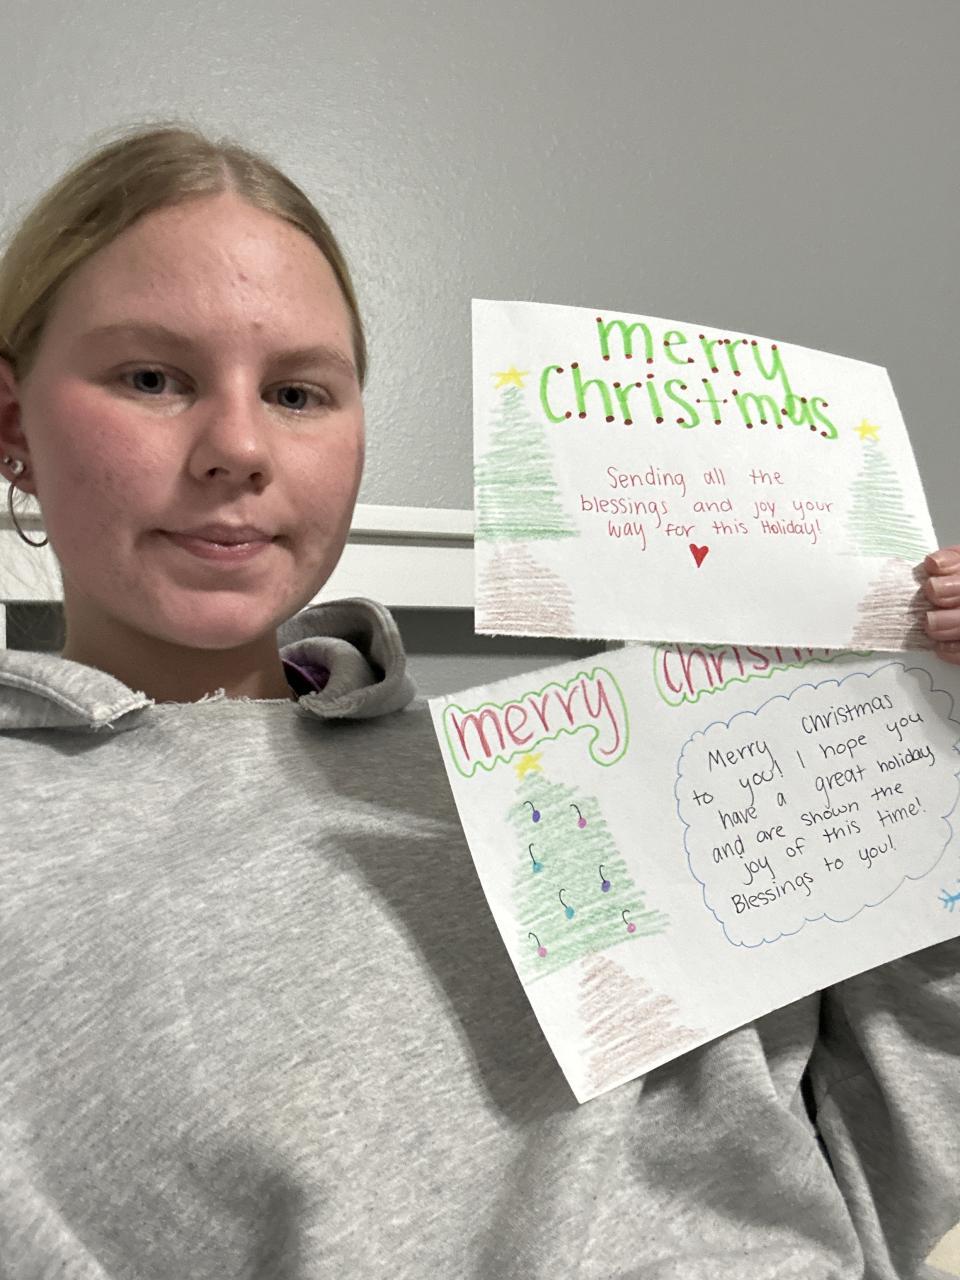 merry
Christmas
Sending all the
blessings and joy your
way for this Holiday!
merry christm
Merry Christmas
to you! I hope you
have a great holiday
and are shown the
joy of this time!
Blessings to you!